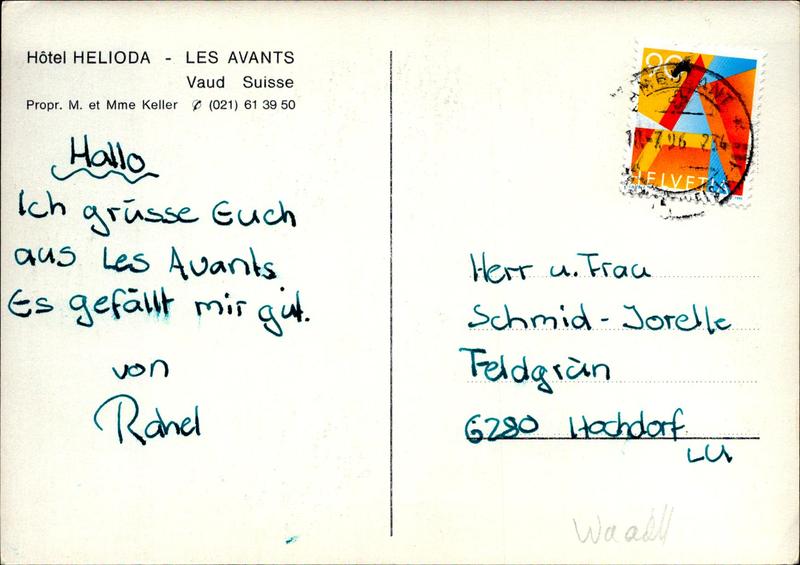 Hôtel HELIODA - LES AVANTS
Vaud Suisse
Propr. M. et Mme Keller ✆ (021) 61 39 50
Hallo
Ich grüsse Euch
aus Les Avants
Es gefällt mir gut.
von
Rahel
90
HELVETIA
Herr u. Frau
Schmid-Jorelle
Feldgrün
6280 Hochdorf
LU
Waadt